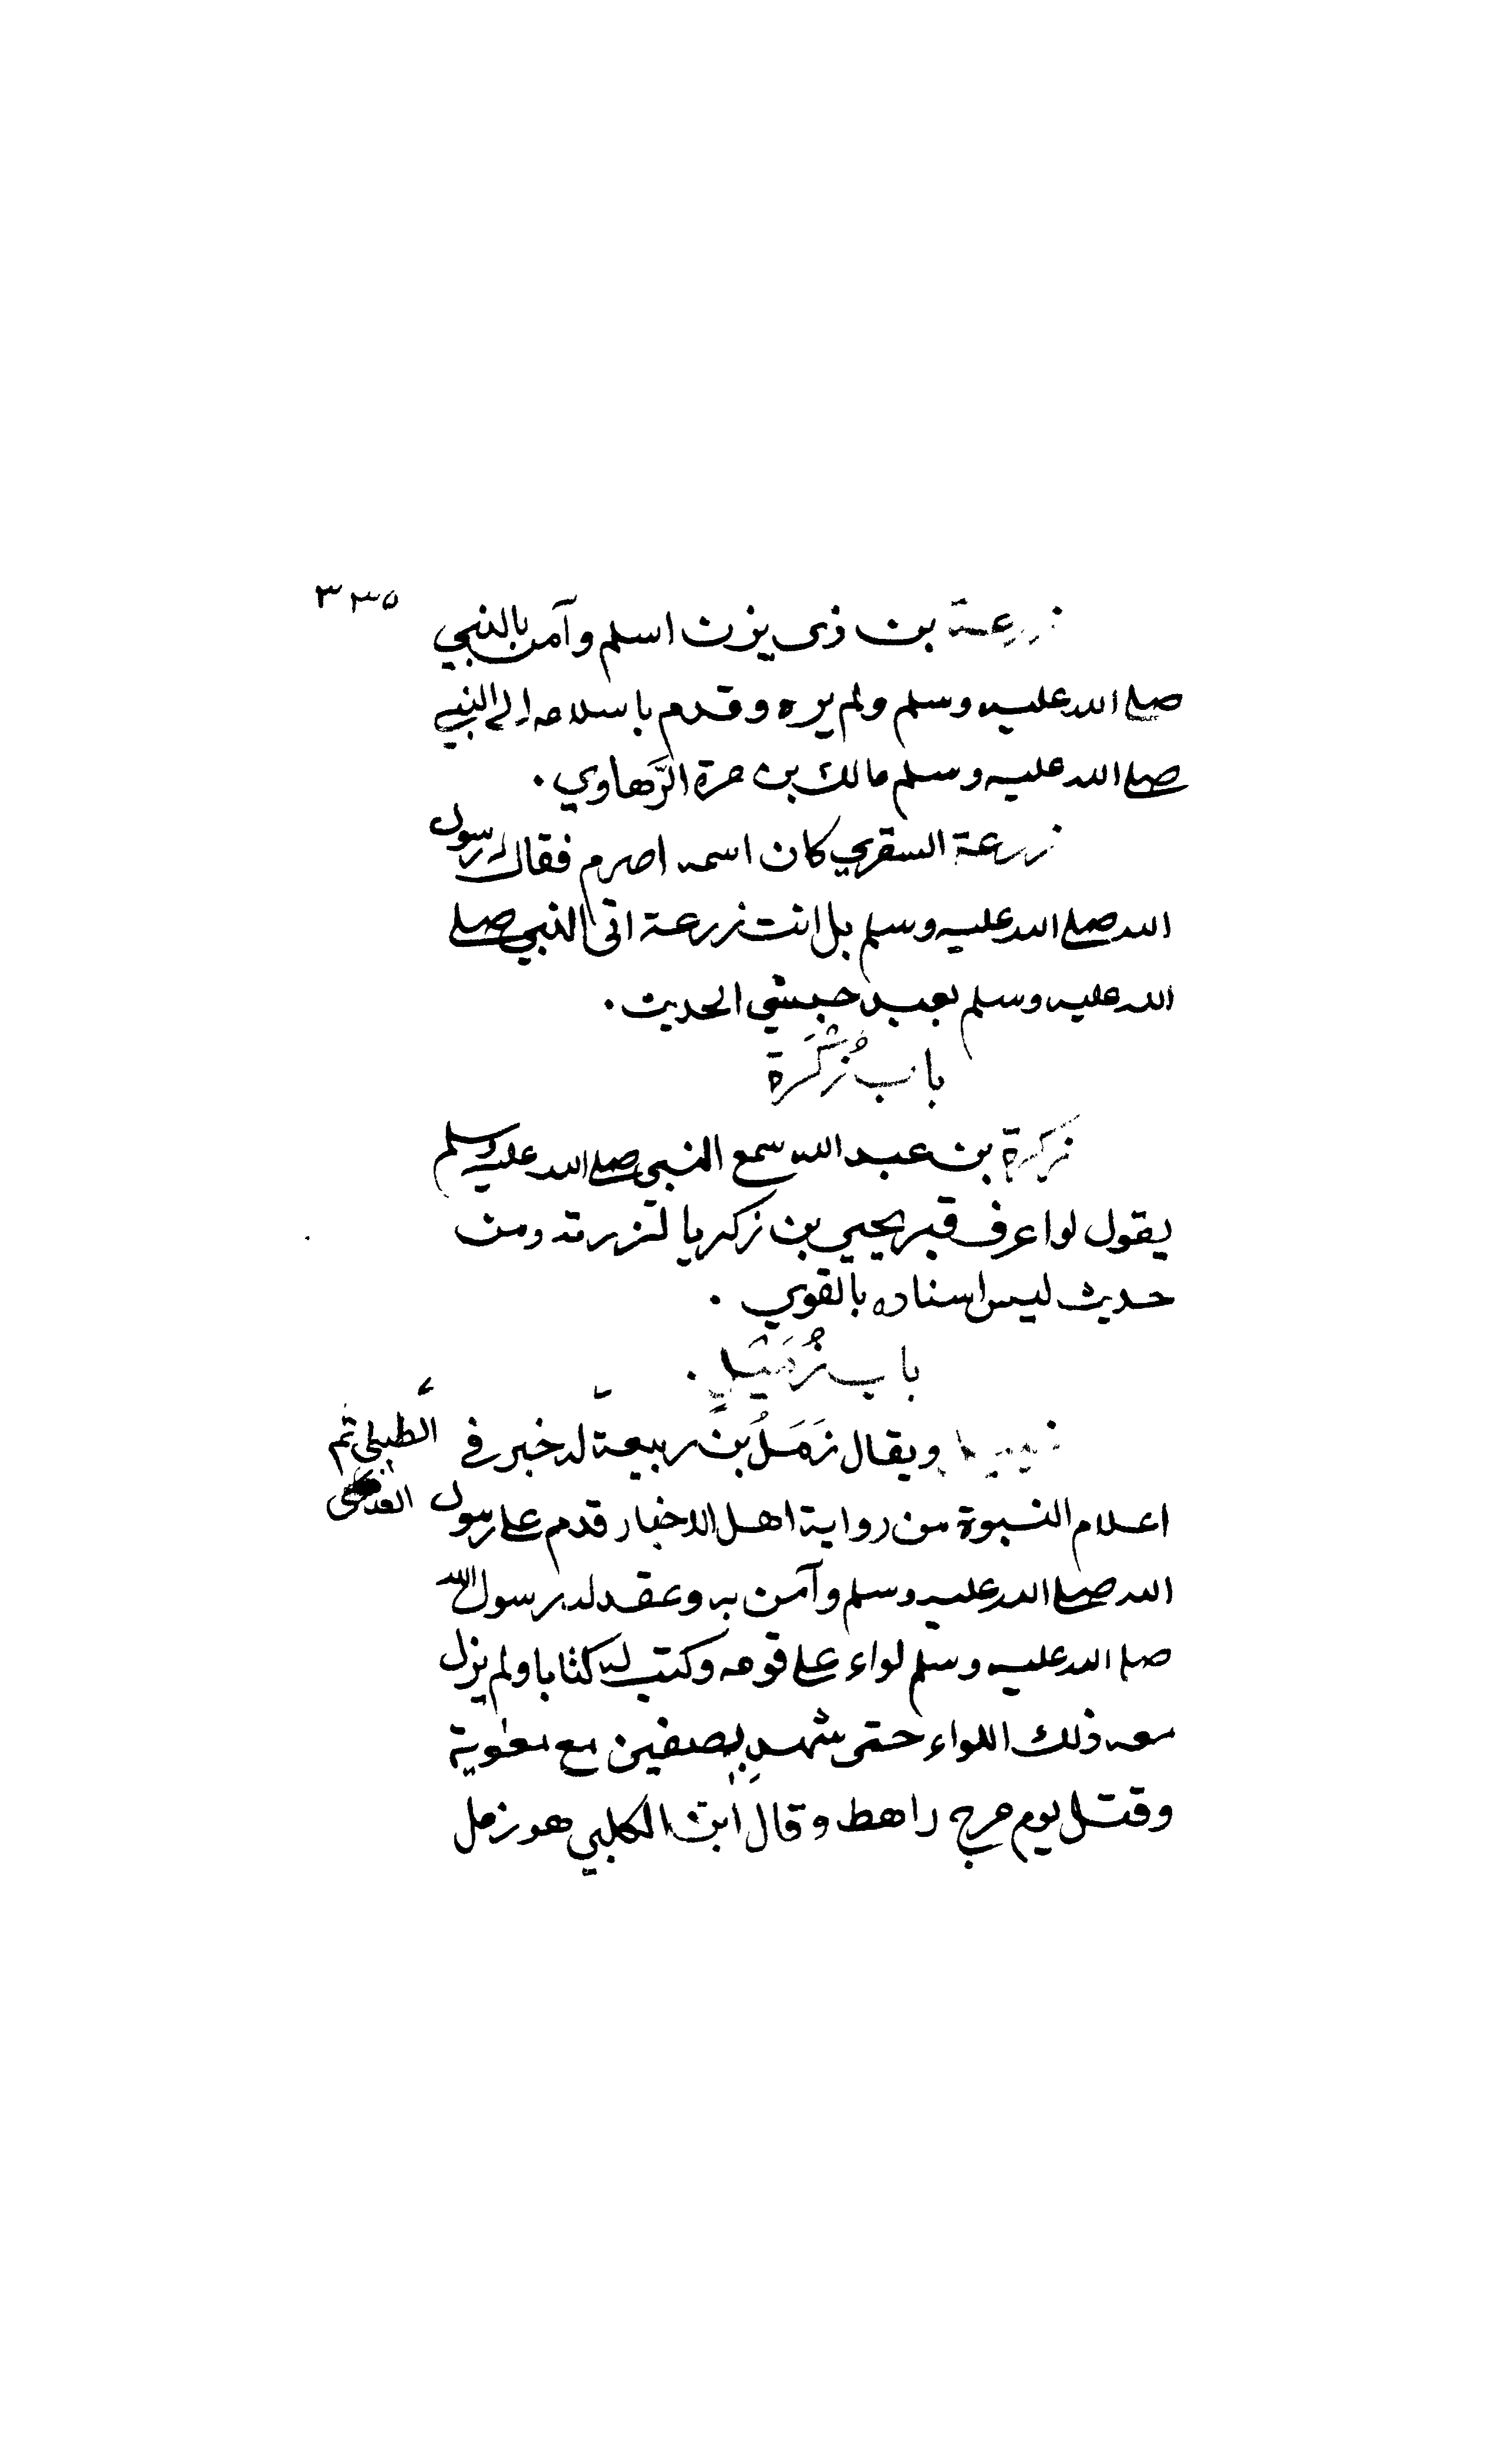 ٣٣٥
زرعة بن ذى يزن اسلم وآمن بالنبي
صلى الله عليه وسلم ولم يره وقدم باسلامه إلى النبي
صلى الله عليه وسلم مالك بن مرة الرَّهاوي .
زرعة السقري كان اسمه اصرم فقال رسول
الله صلى الله عليه وسلم بل انت زرعة اتى النبي صلى
الله عليه وسلم بعبد حبشي الحديث .
باب زُكْرَة
زكرة بن عبد الله سمع النبي صلى الله عليه وسلم
يقول لو اعرف قبر يحيي بن زكريا لزرته ومن
حديث ليس اسناده بالقوي .
باب زُمَيْل .
ويقال زَمَلُ بن ربيعة له خبر في
الطبلي ثم
اعلام النبوة من رواية اهل الاخبار قدم على رسول
الله صلى الله عليه وسلم وآمن به وعقد له رسول الله
صلى الله عليه وسلم لواء على قومه وكتب له كتابا ولم يزل
معه ذلك اللواء حتى شهد بصفين مع معوية
وقتل يوم مرج راهط وقال ابن الكلبي هو زمل